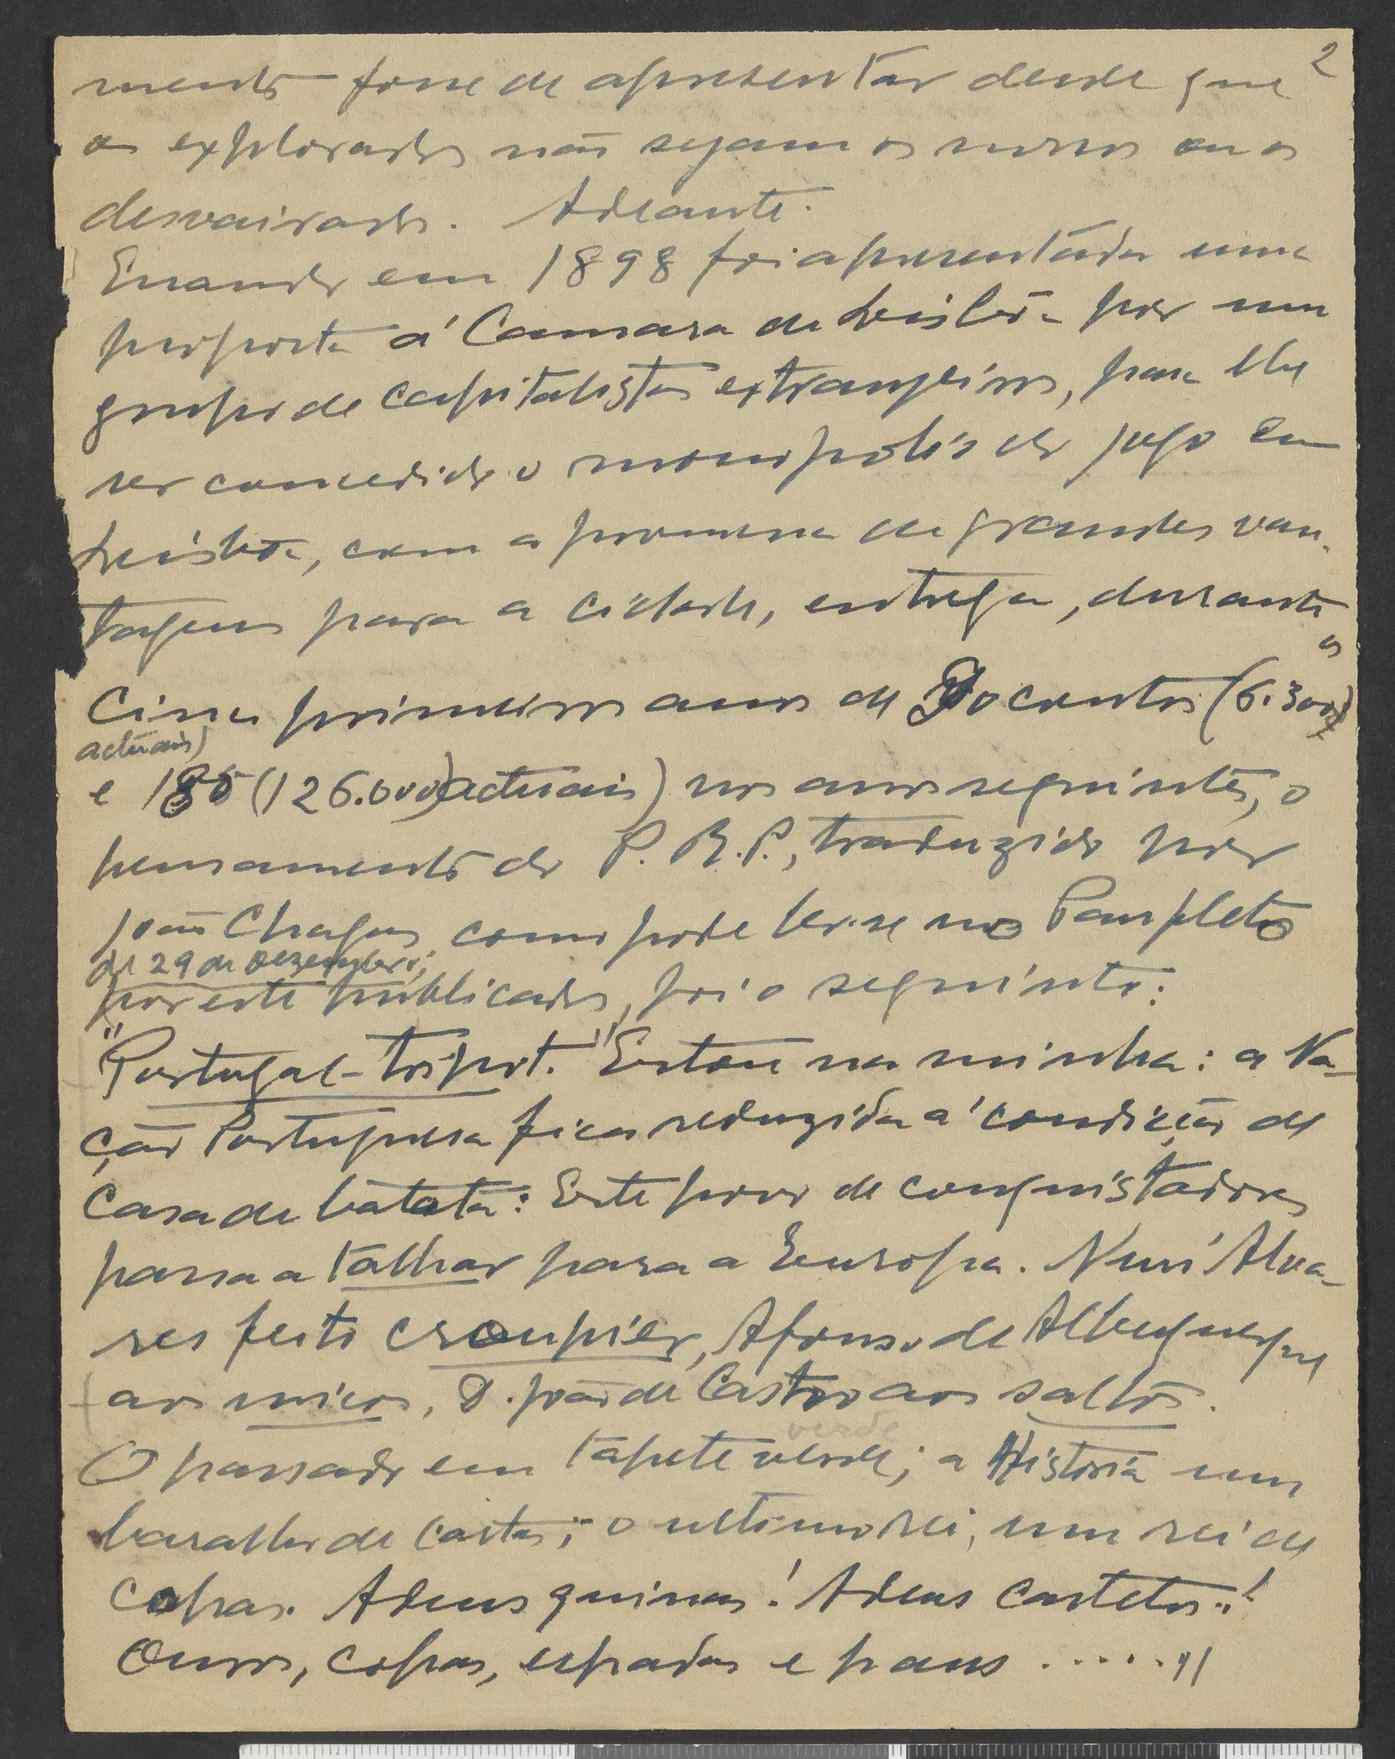 2
mento fosse de apresentar desde que
os explorados não sejam os nossos ou os
desvairados. Adeante.
Quando em 1898 foi apresentada uma
proposta á Camara de Lisbôa por um
grupo de capitalistas extrangeiros, para lhe
ser concedido o monopolio do jogo em
Lisbôa, com a promessa de grandes van-
tagens para a cidade, entrega, durante
os
cinco primeiros anos de 90 contos (6.300
actuais)
e 180 (126.000 actuais) nos anos seguintes, o
pensamento do P. R. P., traduzido por
João Chagas, como pode ler-se nos Pampletos
de 29 de Dezembro;
por este publicados, foi o seguinte:
"Portugal-tripot." Estou na minha: a Na-
ção Portuguesa fica reduzida á condição de
casa de batota: Este povo de conquistadores
passa a talhar para a Europa. Nun'Alva-
res feito croupier, Afonso de Albuquerque
aos micos, D. João de Castro aos saltos.
verde
O passado em tapete verde; a Historia num
baralho de cartas; o ultimo rei, um rei de
copas. Adeus quinas! Adeus castelos..!
Ouros, copas, espadas e paus ....."